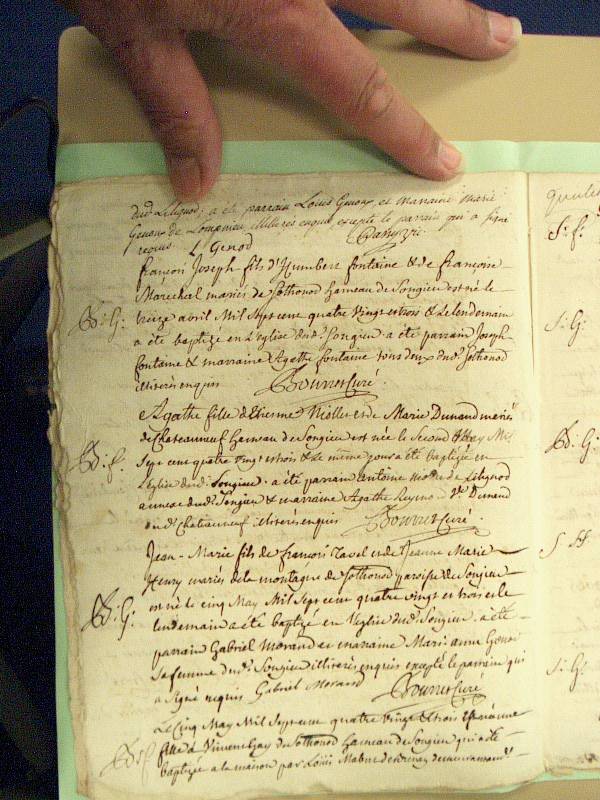 dud. Lilignod; a été parrain Louis Genod et Marraine Marie
Genod de Lompnieu illiterés enquis excepté le parrain qui a signé
requis L Genod
françois Joseph fils d'Humbert fontaine & de françoise
Marechal mariés de Sothonod hameau de Songieu est né le
treize avril Mil Sept cent quatre vingt trois & le lendemain
B: G: a été baptizé en L'église dud. Songieu. a été parrain Joseph
fontaine & marraine Agathe fontaine tous deux dud. Sothonod
illiterés enquis Bouvret Curé.
Agathe fille d'Etienne et de Marie Dunand mariés
de Chateauneuf hameau de Songieu est née le Second May Mil
B: f. Sept cent quatre vingt trois & le même jour a été baptizée en
L'église dud. Songieu. a été parrain antoine de Lilignod
annexe dud. Songieu & marraine Agathe Dunand
dud. Chateauneuf illiterés enquis Bouvret Curé.
Jean-Marie fils de françois Tavel et de Jeanne Marie
Henry mariés de la montagne de Sothonod paroisse de Songieu
B: G: est né le cinq May Mil Sept cent quatre vingt et trois et le
lendemain a été baptizé en L'église dud. Songieu. a été
parrain Gabriel Morand et marraine Marie anne Genod
sa femme dud. Songieu illiterés enquis excepté le parrain qui
a signé requis Gabriel Morand Bouvret Curé
Le Cinq May Mil Sept cent quatre vingt & trois est née une
B: f fille à Vincent de Sothonod hameau de Songieu qui a été
baptizée à la maison par Louis
S: f.
S: G:
B: G:
S: G: